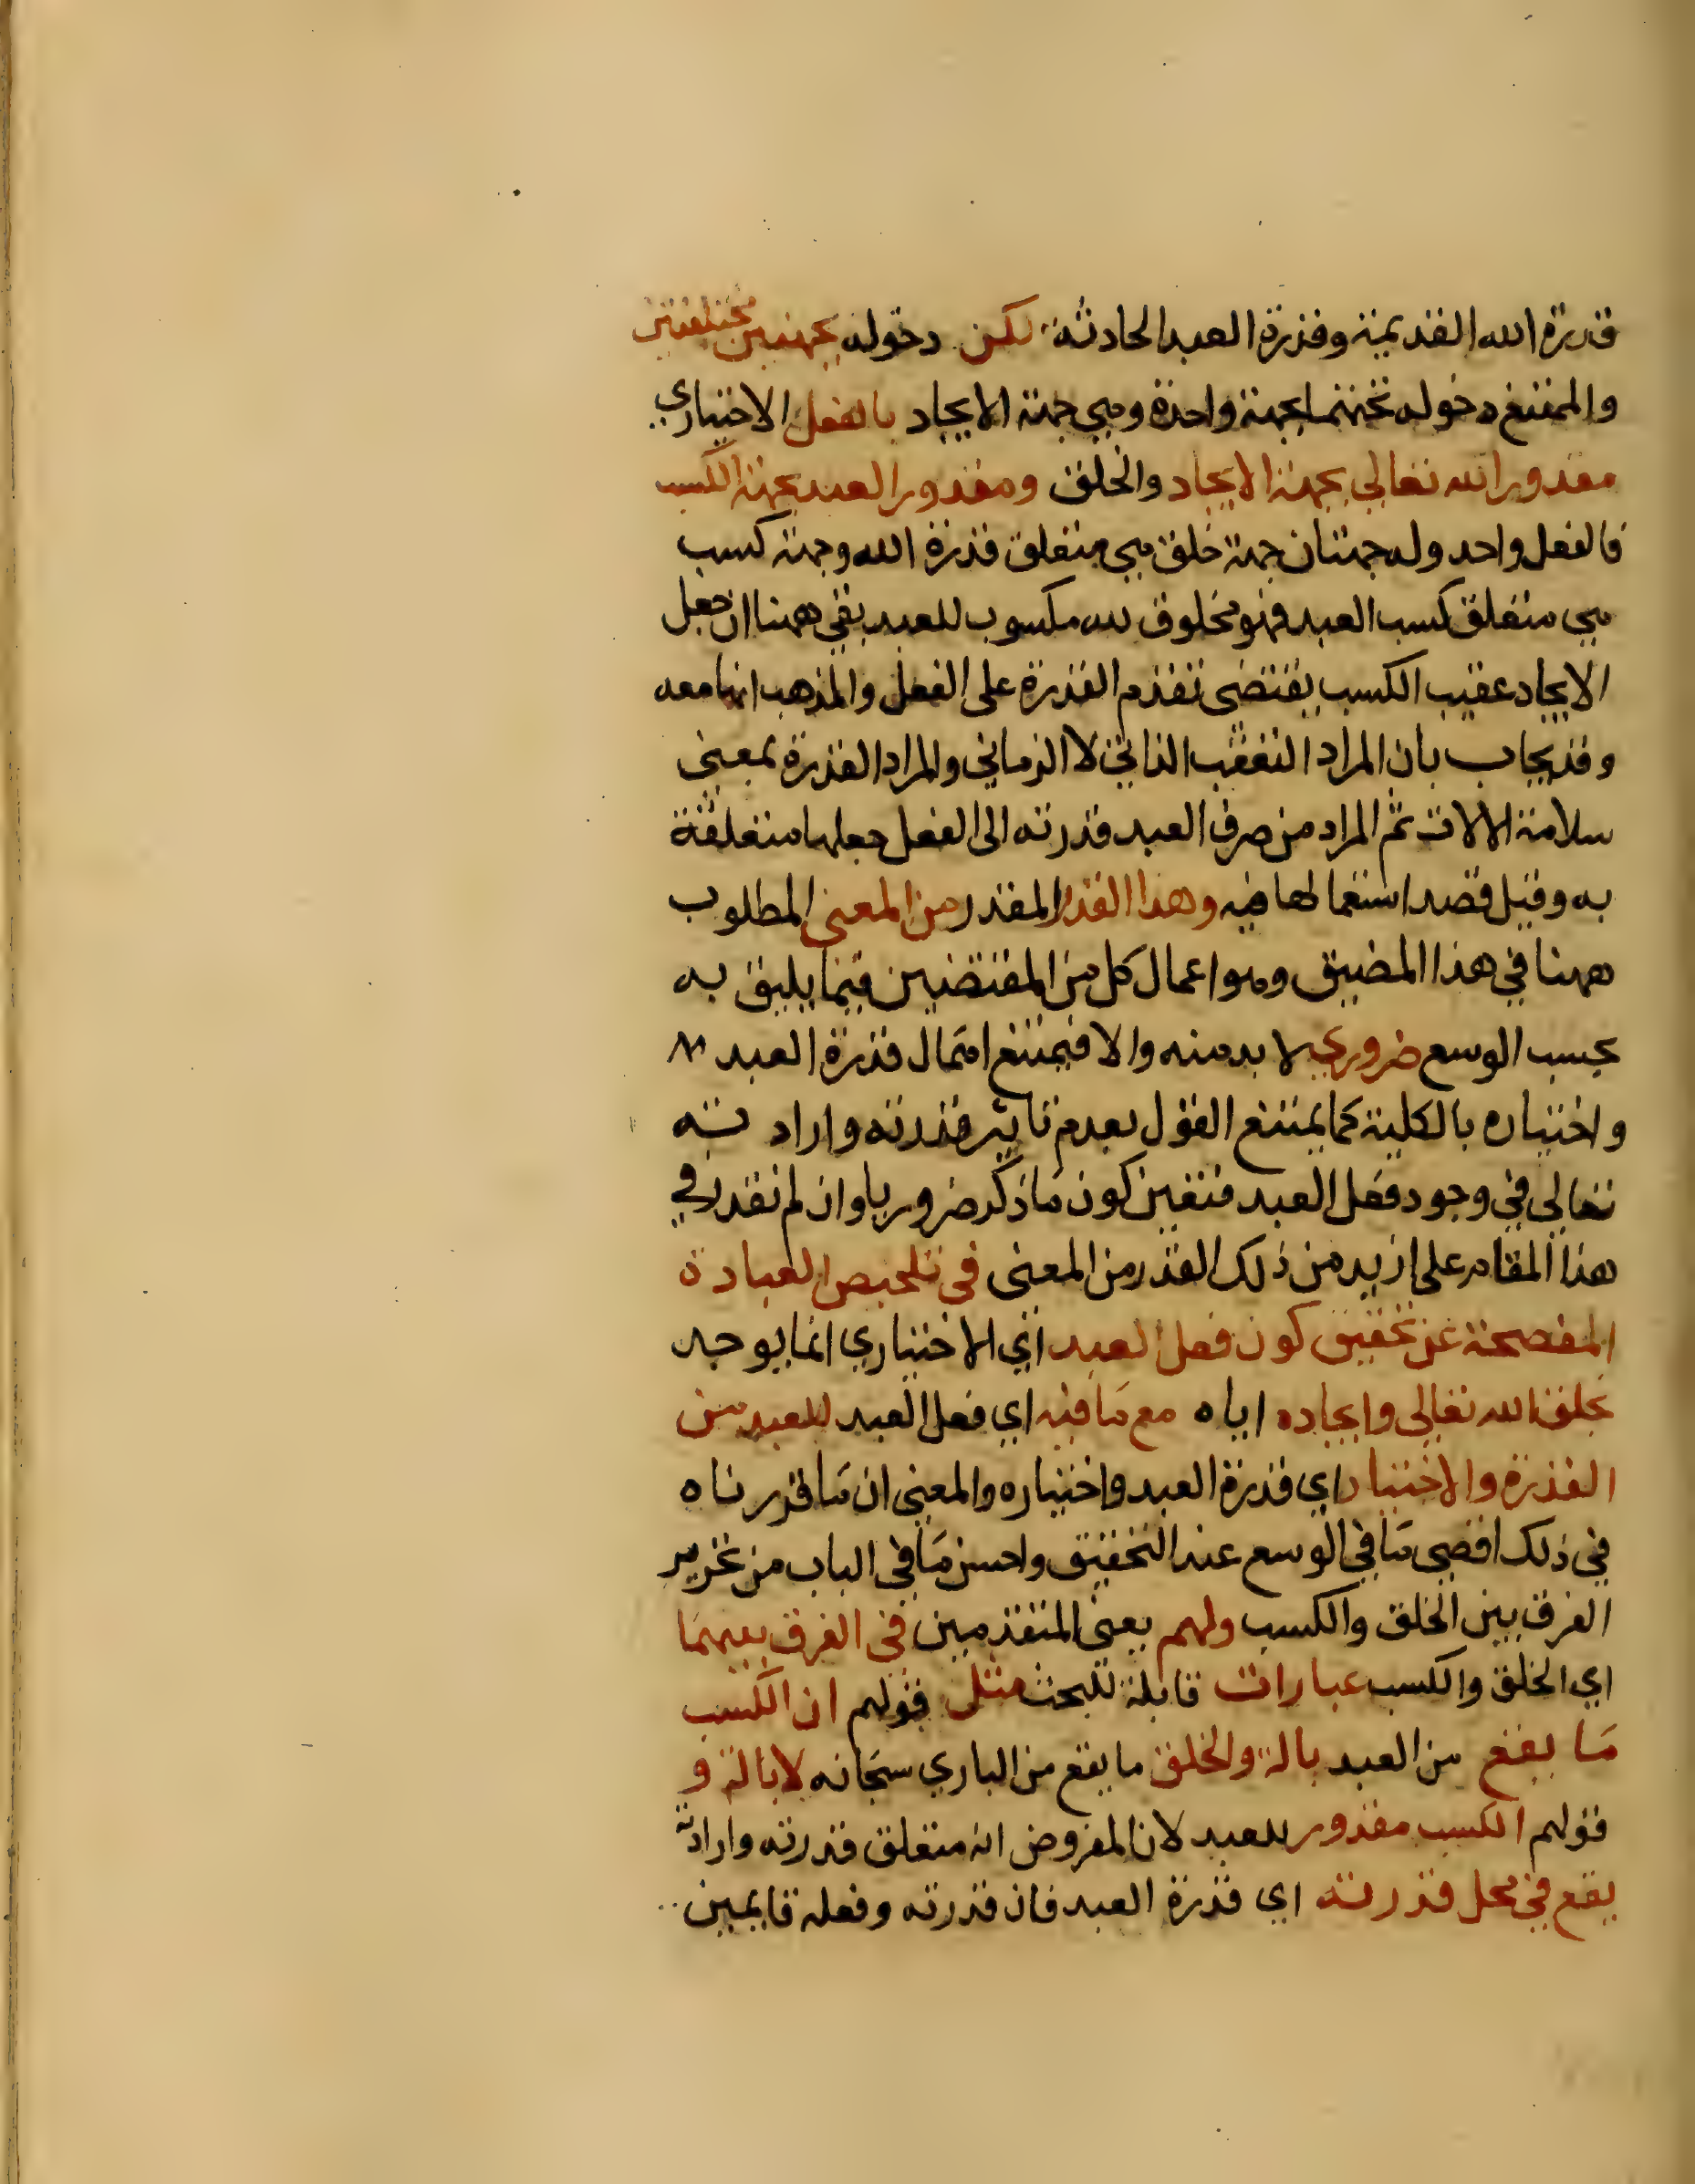 قدرة الله القديمة وقدرة العبد الحادثة لكن دخوله بجهتين مختلفتين
والممتنع دخوله تحتهما بجهة واحدة وهي جهة الايجاد بالفعل الاختياري
مقدور الله تعالي بجهة الايجاد والخلق ومقدور العبد بجهة الكسب
فالفعل واحد وله جهتان جهة خلق هي متعلق قدرة الله وجهة كسب
هي متعلق كسب العبد فهو مخلوق لله مكسوب للعبد بقي ههنا ان جعل
الايجاد عقيب الكسب يقتضي تقدم القدرة على الفعل والمذهب انها معه
وقد يجاب بان المراد التعقب الذاتي لا الزماني والمراد القدرة بمعني
سلامة الالات ثم المراد من صرف العبد قدرته الى الفعل جعلها متعلقة
به وقيل قصد استعمالها فيه وهذا القدر المقدر من المعنى المطلوب
ههنا في هذا المضيق وهو اعمال كل من المقتضيين فيما يليق به
بحسب الوسع ضروري لا بد منه والا فيمتنع اهمال قدرة العبد
واختياره بالكلية كما يمتنع القول بعدم تاثير قدرته وارادته
تعالي في وجود فعل العبد فتعين كون ما ذكر ضروريا وان لم نقدر في
هذا المقام على ازيد من ذلك القدر من المعنى في تلخيص العبادة
المفصحة عن تحقيق كون فعل العبد اي الاختياري انما يوجد
بخلق الله تعالي وايجاده اياه مع ما فيه اي فعل العبد للعبد من
القدرة والاختيار اي قدرة العبد واختياره والمعني ان ما قررناه
في ذلك اقصى ما في الوسع عند التحقيق واحسن ما في الباب من تحرير
الفرق بين الخلق والكسب ولهم يعني المتقدمين في الفرق بينهما
اي الخلق والكسب عبارات قابلة للبحث مثل قولهم ان الكسب
ما يقع من العبد بالة والخلق ما يقع من الباري سبحانه لا بالة و
قولهم الكسب مقدور للعبد لان المفروض انه متعلق قدرته وارادته
يقع في محل قدرته اي قدرة العبد فان قدرته وفعله قايمين